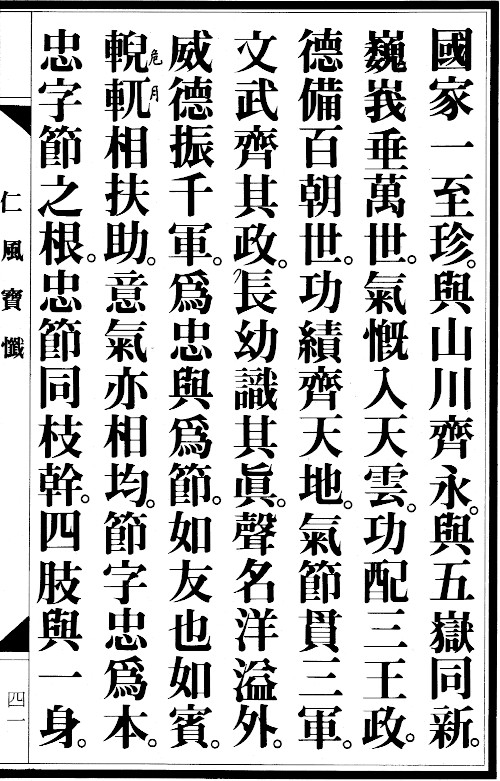 國家一至珍。與山川齊永。與五嶽同新。
巍峩垂萬世。氣慨入天雲。功配三王政。
德備百朝世。功績齊天地。氣節貫三軍。
文武齊其政。長幼識其眞。聲名洋溢外。
威德振千軍。爲忠與爲節。如友也如賓。
危月
輗軏相扶助。意氣亦相均。節字忠爲本。
忠字節之根。忠節同枝幹。四肢與一身。
仁風寶懺
四一